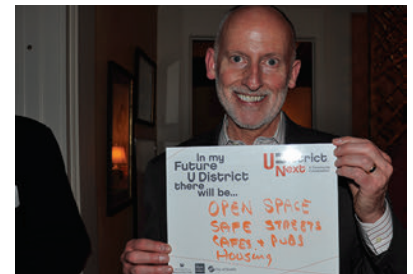 In my
Future
U District
there
will be...
U District
Next
OPEN SPACE
SAFE STREETS
CAFES + PUBS
Housing